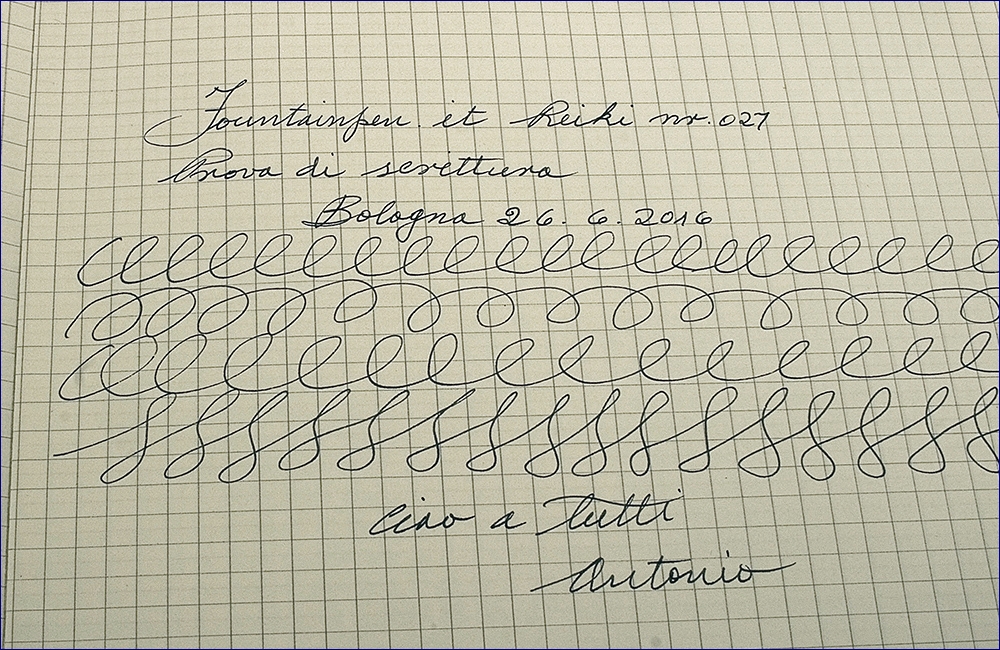 Fountainpen et Reiki nr. 027
Prova di scrittura
Bologna 26. 6. 2016
Ciao a tutti
Antonio